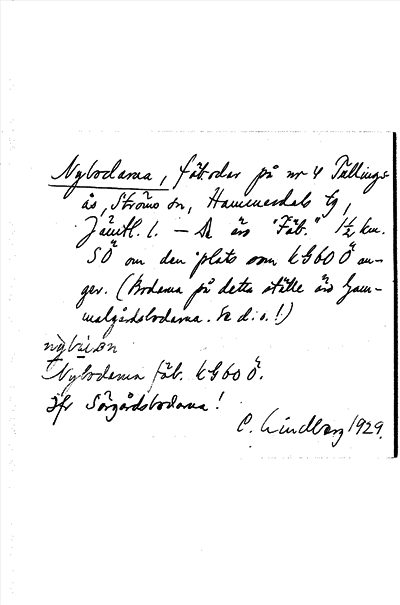 Nybodarna, fäbodar på nr 4 Fullings-
ås, Ströms sn, Hammerdals tg,
Jämtl. l. – Är "Fäb." 1½ km.
SÖ om den plats som kG60Ö an-
ger. (Bodarna på detta ställe äro Gam-
malgårdsbodarna. Se d. o.!)
Nybodarna fäb. kG60Ö.
Jfr Sörgårdsbodarna!
C. Lindberg 1929.